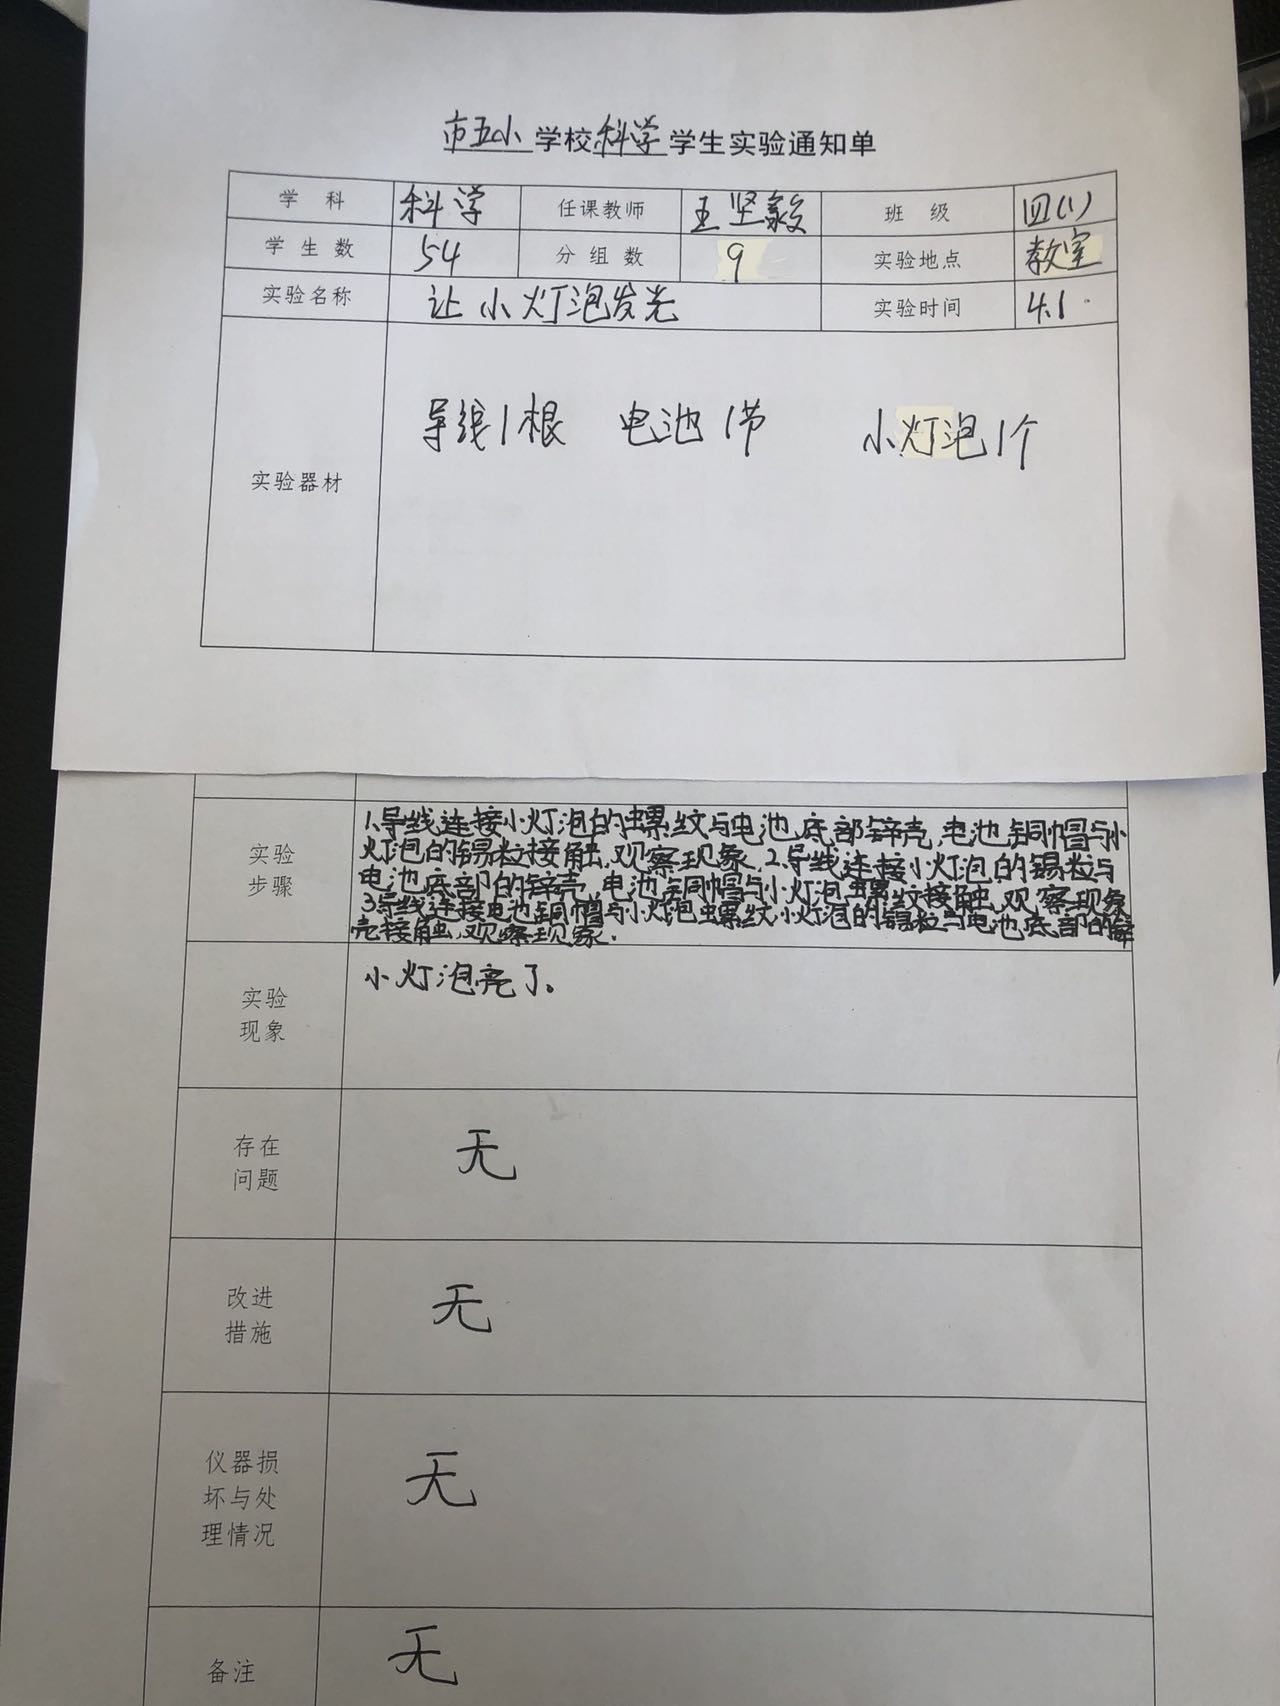 市五小学校科学学生实验通知单
学 科 科学 任课教师 王坚毅 班 级 四(1)
学 生 数 54 分 组 数 9 实验地点 教室
实验名称 让小灯泡发光 实验时间 4.1.
导线1根 电池1节 小灯泡1个
实验器材
1.导线连接小灯泡的螺纹与电池底部锌壳,电池铜帽与小
灯泡的锡粒接触,观察现象.2.导线连接小灯泡的锡粒与
电池底部的锌壳,电池铜帽与小灯泡螺纹接触,观察现象
3.导线连接电池铜帽与小灯泡螺纹,小灯泡的锡粒与电池底部的锌
壳接触,观察现象.
实验
步骤
小灯泡亮了。
实验
现象
存在
问题
无
改进
措施
无
仪器损
坏与处
理情况
无
备注 无